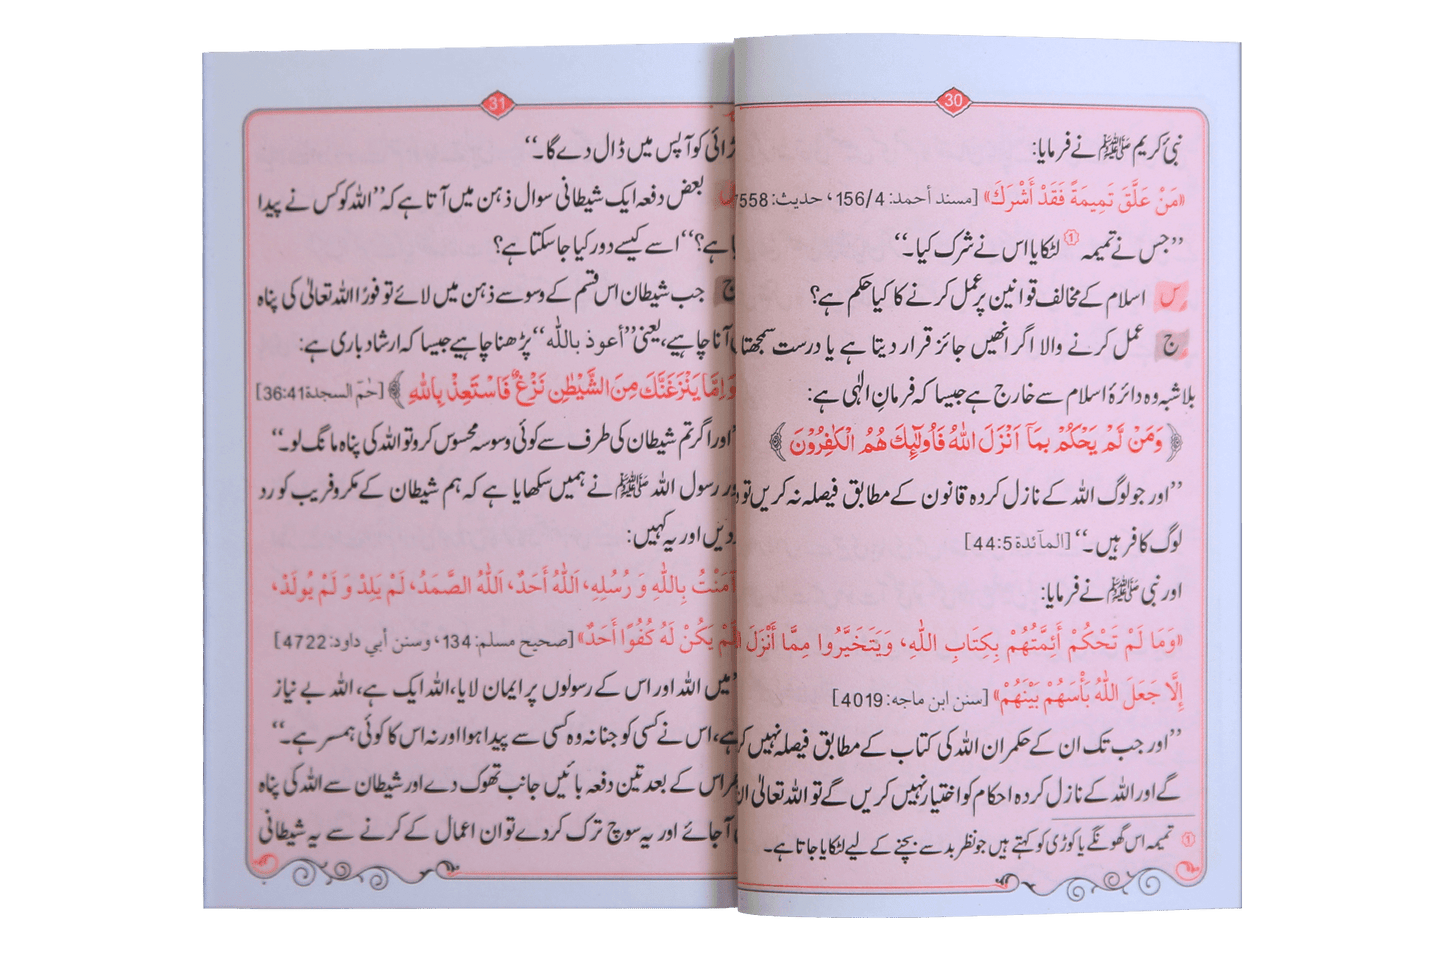 30
نبیٔ کریم ﷺ نے فرمایا:
«مَنْ عَلَّقَ تَمِيمَةً فَقَدْ أَشْرَكَ» [مسند أحمد: 156/4، حدیث: 7558
’’جس نے تمیمہ ① لٹکایا اس نے شرک کیا۔‘‘
س اسلام کے مخالف قوانین پر عمل کرنے کا کیا حکم ہے؟
ج عمل کرنے والا اگر انھیں جائز قرار دیتا ہے یا درست سمجھتا
بلاشبہ وہ دائرۂ اسلام سے خارج ہے جیسا کہ فرمانِ الٰہی ہے:
﴿وَمَنْ لَّمْ يَحْكُمْ بِمَآ اَنْزَلَ اللّٰهُ فَاُولٰٓئِكَ هُمُ الْكٰفِرُوْنَ﴾
’’اور جو لوگ اللہ کے نازل کردہ قانون کے مطابق فیصلہ نہ کریں تو و
لوگ کافر ہیں۔‘‘ [المآئدة 44:5]
اور نبی ﷺ نے فرمایا:
«وَمَا لَمْ تَحْكُمْ أَئِمَّتُهُمْ بِكِتَابِ اللّٰهِ، وَيَتَخَيَّرُوا مِمَّا أَنْزَلَ ال
إِلَّا جَعَلَ اللّٰهُ بَأْسَهُمْ بَيْنَهُمْ» [سنن ابن ماجه: 4019]
’’اور جب تک ان کے حکمران اللہ کی کتاب کے مطابق فیصلہ نہیں کر
گے اور اللہ کے نازل کردہ احکام کو اختیار نہیں کریں گے تو اللہ تعالیٰ ان
① تمیمہ اس گھونگے یا کوڑی کو کہتے ہیں جو نظر بد سے بچنے کے لیے لٹکایا جاتا ہے۔
31
ڑائی کو آپس میں ڈال دے گا۔‘‘
س بعض دفعہ ایک شیطانی سوال ذہن میں آتا ہے کہ ’’اللہ کو کس نے پیدا
یا ہے؟‘‘ اسے کیسے دور کیا جا سکتا ہے؟
ج جب شیطان اس قسم کے وسوسے ذہن میں لائے تو فورًا اللہ تعالیٰ کی پناہ
آنا چاہیے، یعنی ’’أعوذ بالله‘‘ پڑھنا چاہیے جیسا کہ ارشاد باری ہے:
وَاِمَّا يَنْزَغَنَّكَ مِنَ الشَّيْطٰنِ نَزْغٌ فَاسْتَعِذْ بِاللّٰهِ﴾ [حٰمٓ السجدة 36:41]
’’اور اگر تم شیطان کی طرف سے کوئی وسوسہ محسوس کرو تو اللہ کی پناہ مانگ لو۔‘‘
ور رسول اللہ ﷺ نے ہمیں سکھایا ہے کہ ہم شیطان کے مکر و فریب کو رد
دیں اور یہ کہیں:
آمَنْتُ بِاللّٰهِ وَ رُسُلِهِ، اَللّٰهُ أَحَدٌ، اَللّٰهُ الصَّمَدُ، لَمْ يَلِدْ وَ لَمْ يُولَدْ،
لَمْ يَكُنْ لَهُ كُفُوًا أَحَدٌ» [صحيح مسلم: 134، وسنن أبي داود: 4722]
’’میں اللہ اور اس کے رسولوں پر ایمان لایا، اللہ ایک ہے، اللہ بے نیاز
ہے، اس نے کسی کو جنا نہ وہ کسی سے پیدا ہوا اور نہ اس کا کوئی ہمسر ہے۔‘‘
ھر اس کے بعد تین دفعہ بائیں جانب تھوک دے اور شیطان سے اللہ کی پناہ
آ جائے اور یہ سوچ ترک کر دے تو ان اعمال کے کرنے سے یہ شیطانی